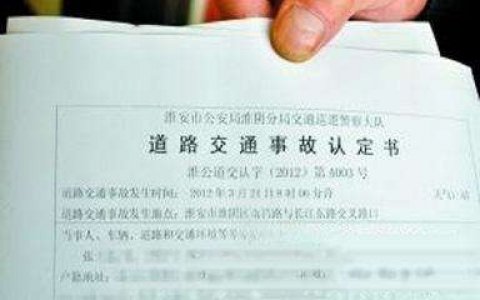 淮安市公安局淮阴分局交通巡逻警察大队
道路交通事故认定书
淮公道交认字〔2012〕第4003号
道路交通事故发生时间：2012年3月24日8时06分许 天气：
道路交通事故发生地点：淮安市淮阴区 路与长江东路交叉路口
当事人、车辆、道路和交通环境等
张
户籍地址：